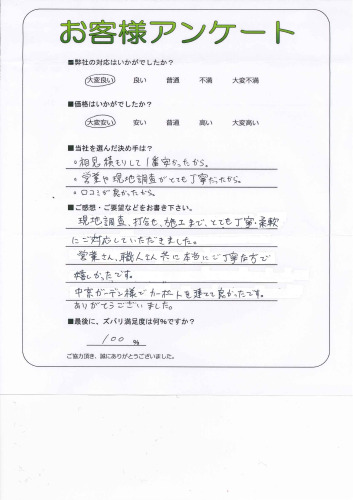 お客様アンケート
■弊社の対応はいかがでしたか？
大変良い 良い 普通 不満 大変不満
■価格はいかがでしたか？
大変安い 安い 普通 高い 大変高い
■当社を選んだ決め手は？
・相見積もりして1番安かったから。
・営業や現地調査がとても丁寧だったから。
・口コミが良かったから。
■ご感想・ご要望などをお書き下さい。
現地調査、打合せ、施工まで、とても丁寧・柔軟
にご対応していただきました。
営業さん、職人さん共に本当にご丁寧な方で
嬉しかったです。
中京ガーデン様でカーポートを建てて良かったです。
ありがとうございました。
■最後に、ズバリ満足度は何%ですか？
100 %
ご協力頂き、誠にありがとうございました。